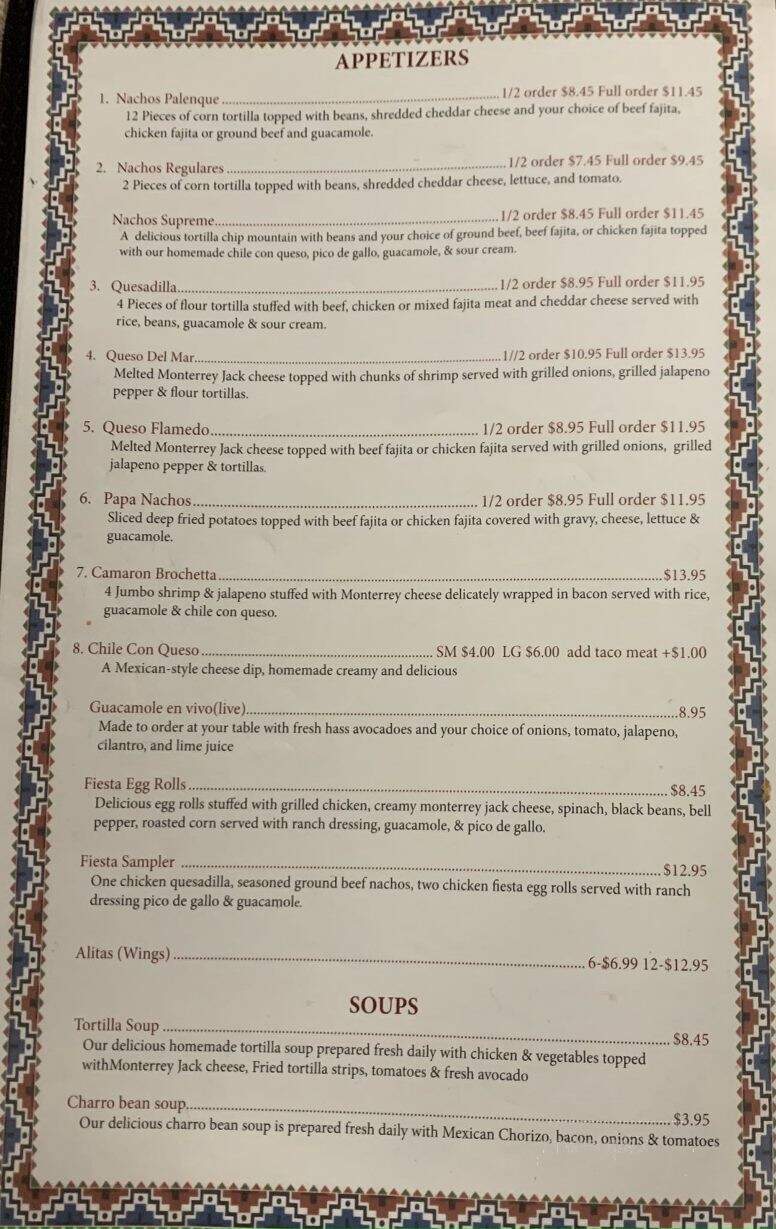 APPETIZERS
1. Nachos Palenque ........ 1/2 order $8.45 Full order $11.45
12 Pieces of corn tortilla topped with beans, shredded cheddar cheese and your choice of beef fajita,
chicken fajita or ground beef and guacamole.
2. Nachos Regulares ........ 1/2 order $7.45 Full order $9.45
2 Pieces of corn tortilla topped with beans, shredded cheddar cheese, lettuce, and tomato.
Nachos Supreme ........ 1/2 order $8.45 Full order $11.45
A delicious tortilla chip mountain with beans and your choice of ground beef, beef fajita, or chicken fajita topped
with our homemade chile con queso, pico de gallo, guacamole, & sour cream.
3. Quesadilla ........ 1/2 order $8.95 Full order $11.95
4 Pieces of flour tortilla stuffed with beef, chicken or mixed fajita meat and cheddar cheese served with
rice, beans, guacamole & sour cream.
4. Queso Del Mar ........ 1//2 order $10.95 Full order $13.95
Melted Monterrey Jack cheese topped with chunks of shrimp served with grilled onions, grilled jalapeno
pepper & flour tortillas.
5. Queso Flamedo ........ 1/2 order $8.95 Full order $11.95
Melted Monterrey Jack cheese topped with beef fajita or chicken fajita served with grilled onions, grilled
jalapeno pepper & tortillas.
6. Papa Nachos ........ 1/2 order $8.95 Full order $11.95
Sliced deep fried potatoes topped with beef fajita or chicken fajita covered with gravy, cheese, lettuce &
guacamole.
7. Camaron Brochetta ........ $13.95
4 Jumbo shrimp & jalapeno stuffed with Monterrey cheese delicately wrapped in bacon served with rice,
guacamole & chile con queso.
8. Chile Con Queso ........ SM $4.00 LG $6.00 add taco meat +$1.00
A Mexican-style cheese dip, homemade creamy and delicious
Guacamole en vivo(live) ........ 8.95
Made to order at your table with fresh hass avocadoes and your choice of onions, tomato, jalapeno,
cilantro, and lime juice
Fiesta Egg Rolls ........ $8.45
Delicious egg rolls stuffed with grilled chicken, creamy monterrey jack cheese, spinach, black beans, bell
pepper, roasted corn served with ranch dressing, guacamole, & pico de gallo.
Fiesta Sampler ........ $12.95
One chicken quesadilla, seasoned ground beef nachos, two chicken fiesta egg rolls served with ranch
dressing pico de gallo & guacamole.
Alitas (Wings) ........ 6-$6.99 12-$12.95
SOUPS
Tortilla Soup ........ $8.45
Our delicious homemade tortilla soup prepared fresh daily with chicken & vegetables topped
withMonterrey Jack cheese, Fried tortilla strips, tomatoes & fresh avocado
Charro bean soup ........ $3.95
Our delicious charro bean soup is prepared fresh daily with Mexican Chorizo, bacon, onions & tomatoes